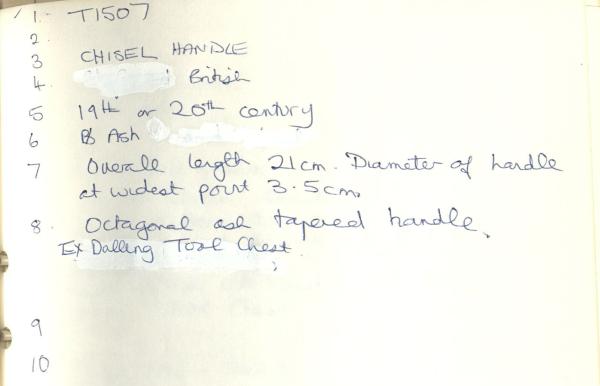 1. T1507
2.
3 CHISEL HANDLE
4. British
5 19th or 20th century
6 Ash
7 Overall length 21cm. Diameter of handle
at widest point 3.5cm.
8. Octagonal ash tapered handle.
Ex Dalling Tool Chest.
9
10